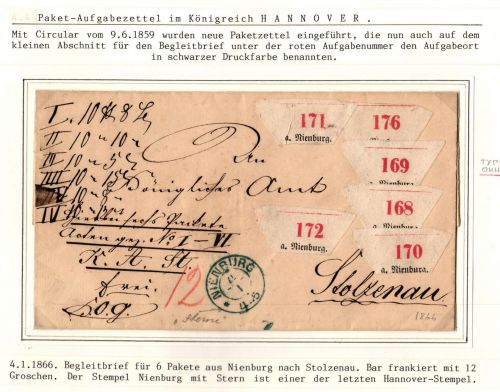 Paket-Aufgabezettel im Königreich HANNOVER.
Mit Circular vom 9.6.1859 wurden neue Paketzettel eingeführt, die nun auch auf dem
kleinen Abschnitt für den Begleitbrief unter der roten Aufgabenummer den Aufgabeort
in schwarzer Druckfarbe benannten.
171
a. Nienburg.
176
169
a. Nienburg.
168
a. Nienburg.
172
a. Nienburg.
170
a. Nienburg.
An
Königliches Amt
Hierbei sechs Pakete
Acten gez. No I - VI
K. A. St.
frei.
12
NIENBURG
Stolzenau.
4.1.1866. Begleitbrief für 6 Pakete aus Nienburg nach Stolzenau. Bar frankiert mit 12
Groschen. Der Stempel Nienburg mit Stern ist einer der letzten Hannover-Stempel.